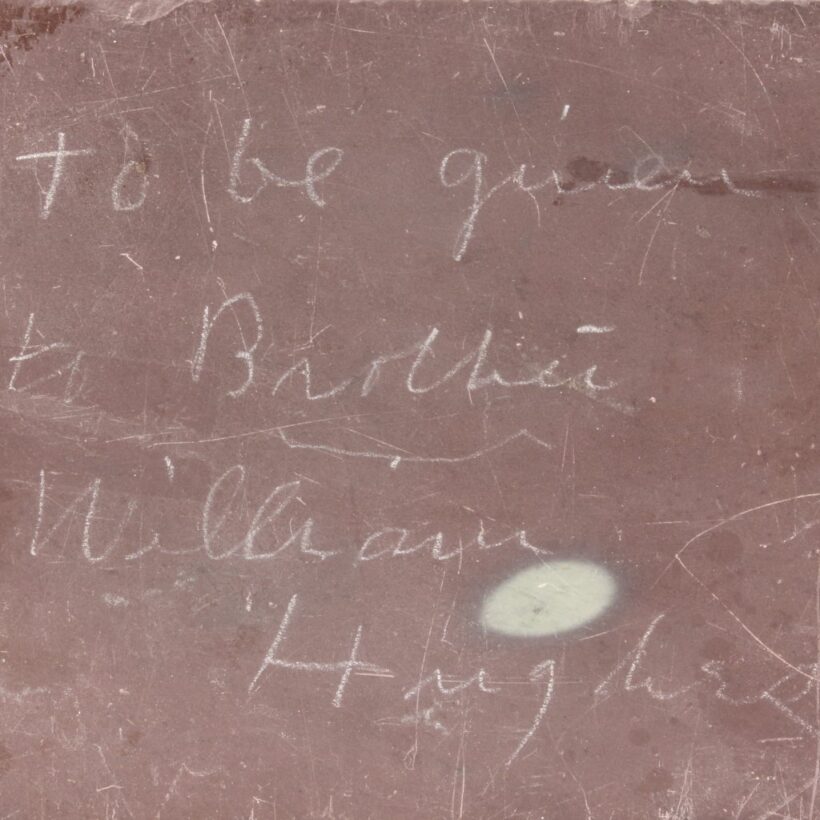 to be given
to Brother
William
Hughes